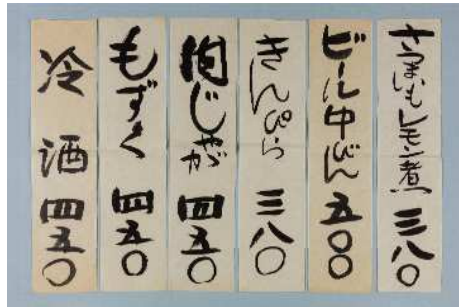 さつまいもレモン煮 三八〇
ビール中びん 五〇〇
きんぴら 三八〇
肉じゃが 四五〇
もずく 四五〇
冷酒 四五〇